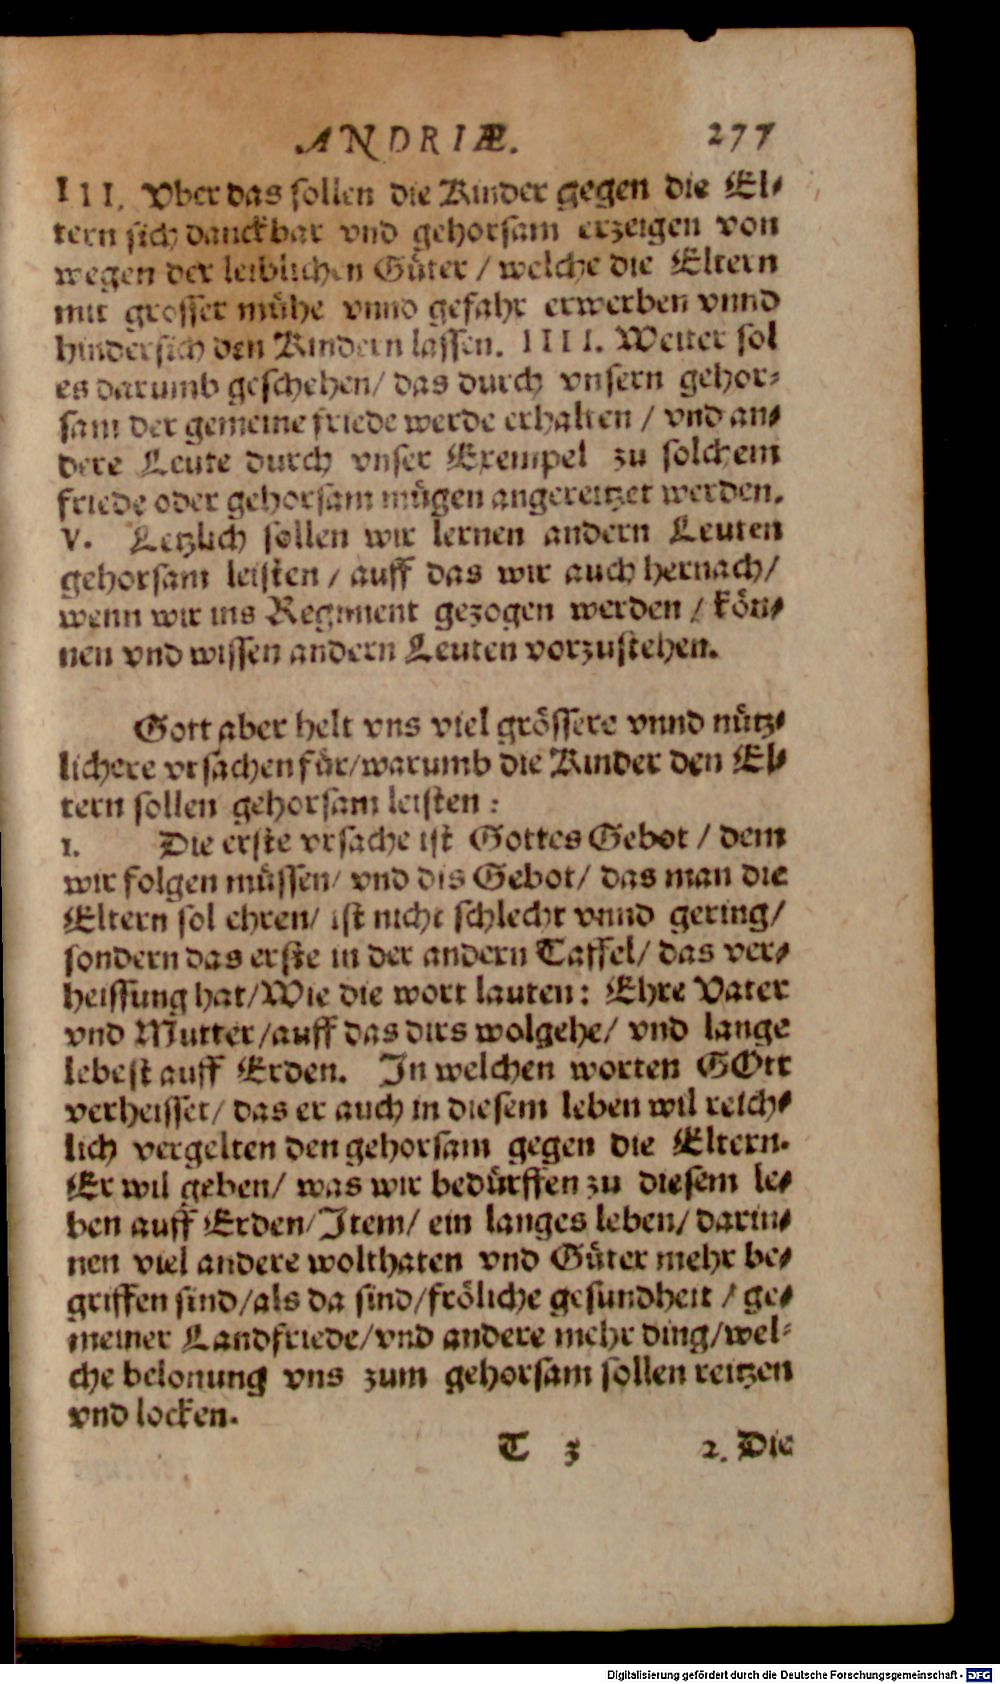 ANDRIÆ. 277
III. Vber das sollen die Kinder gegen die El-
tern sich danckbar vnd gehorsam erzeigen von
wegen der leiblichen Güter / welche die Eltern
mit grosser mühe vnnd gefahr erwerben vnnd
hindersich den Kindern lassen. IIII. Weiter sol
es darumb geschehen/ das durch vnsern gehor-
sam der gemeine friede werde erhalten / vnd an-
dere Leute durch vnser Exempel zu solchem
friede oder gehorsam mügen angereitzet werden.
V. Letzlich sollen wir lernen andern Leuten
gehorsam leisten / auff das wir auch hernach/
wenn wir ins Regiment gezogen werden / kön-
nen vnd wissen andern Leuten vorzustehen.
Gott aber helt vns viel grössere vnnd nütz-
lichere vrsachen für/warumb die Kinder den El-
tern sollen gehorsam leisten :
1. Die erste vrsache ist Gottes Gebot / dem
wir folgen müssen/ vnd dis Gebot/ das man die
Eltern sol ehren/ ist nicht schlecht vnnd gering/
sondern das erste in der andern Taffel/ das ver-
heissung hat/Wie die wort lauten: Ehre Vater
vnd Mutter/auff das dirs wolgehe/ vnd lange
lebest auff Erden. In welchen worten GOtt
verheisset/ das er auch in diesem leben wil reich-
lich vergelten den gehorsam gegen die Eltern.
Er wil geben/ was wir bedürffen zu diesem le-
ben auff Erden/Item/ ein langes leben/ darin-
nen viel andere wolthaten vnd Güter mehr be-
griffen sind/als da sind/fröliche gesundheit / ge-
meiner Landfriede/vnd andere mehr ding/wel-
che belonung vns zum gehorsam sollen reitzen
vnd locken.
T 3 2. Die
Digitalisierung gefördert durch die Deutsche Forschungsgemeinschaft - DFG